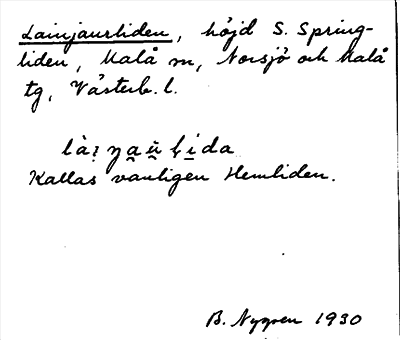 Lainjaurliden, höjd S. Spring-
liden, Malå m, Norsjö och Malå
tg, Västerb. l.
Kallas vanligen Hemliden.
B. Nygren 1930